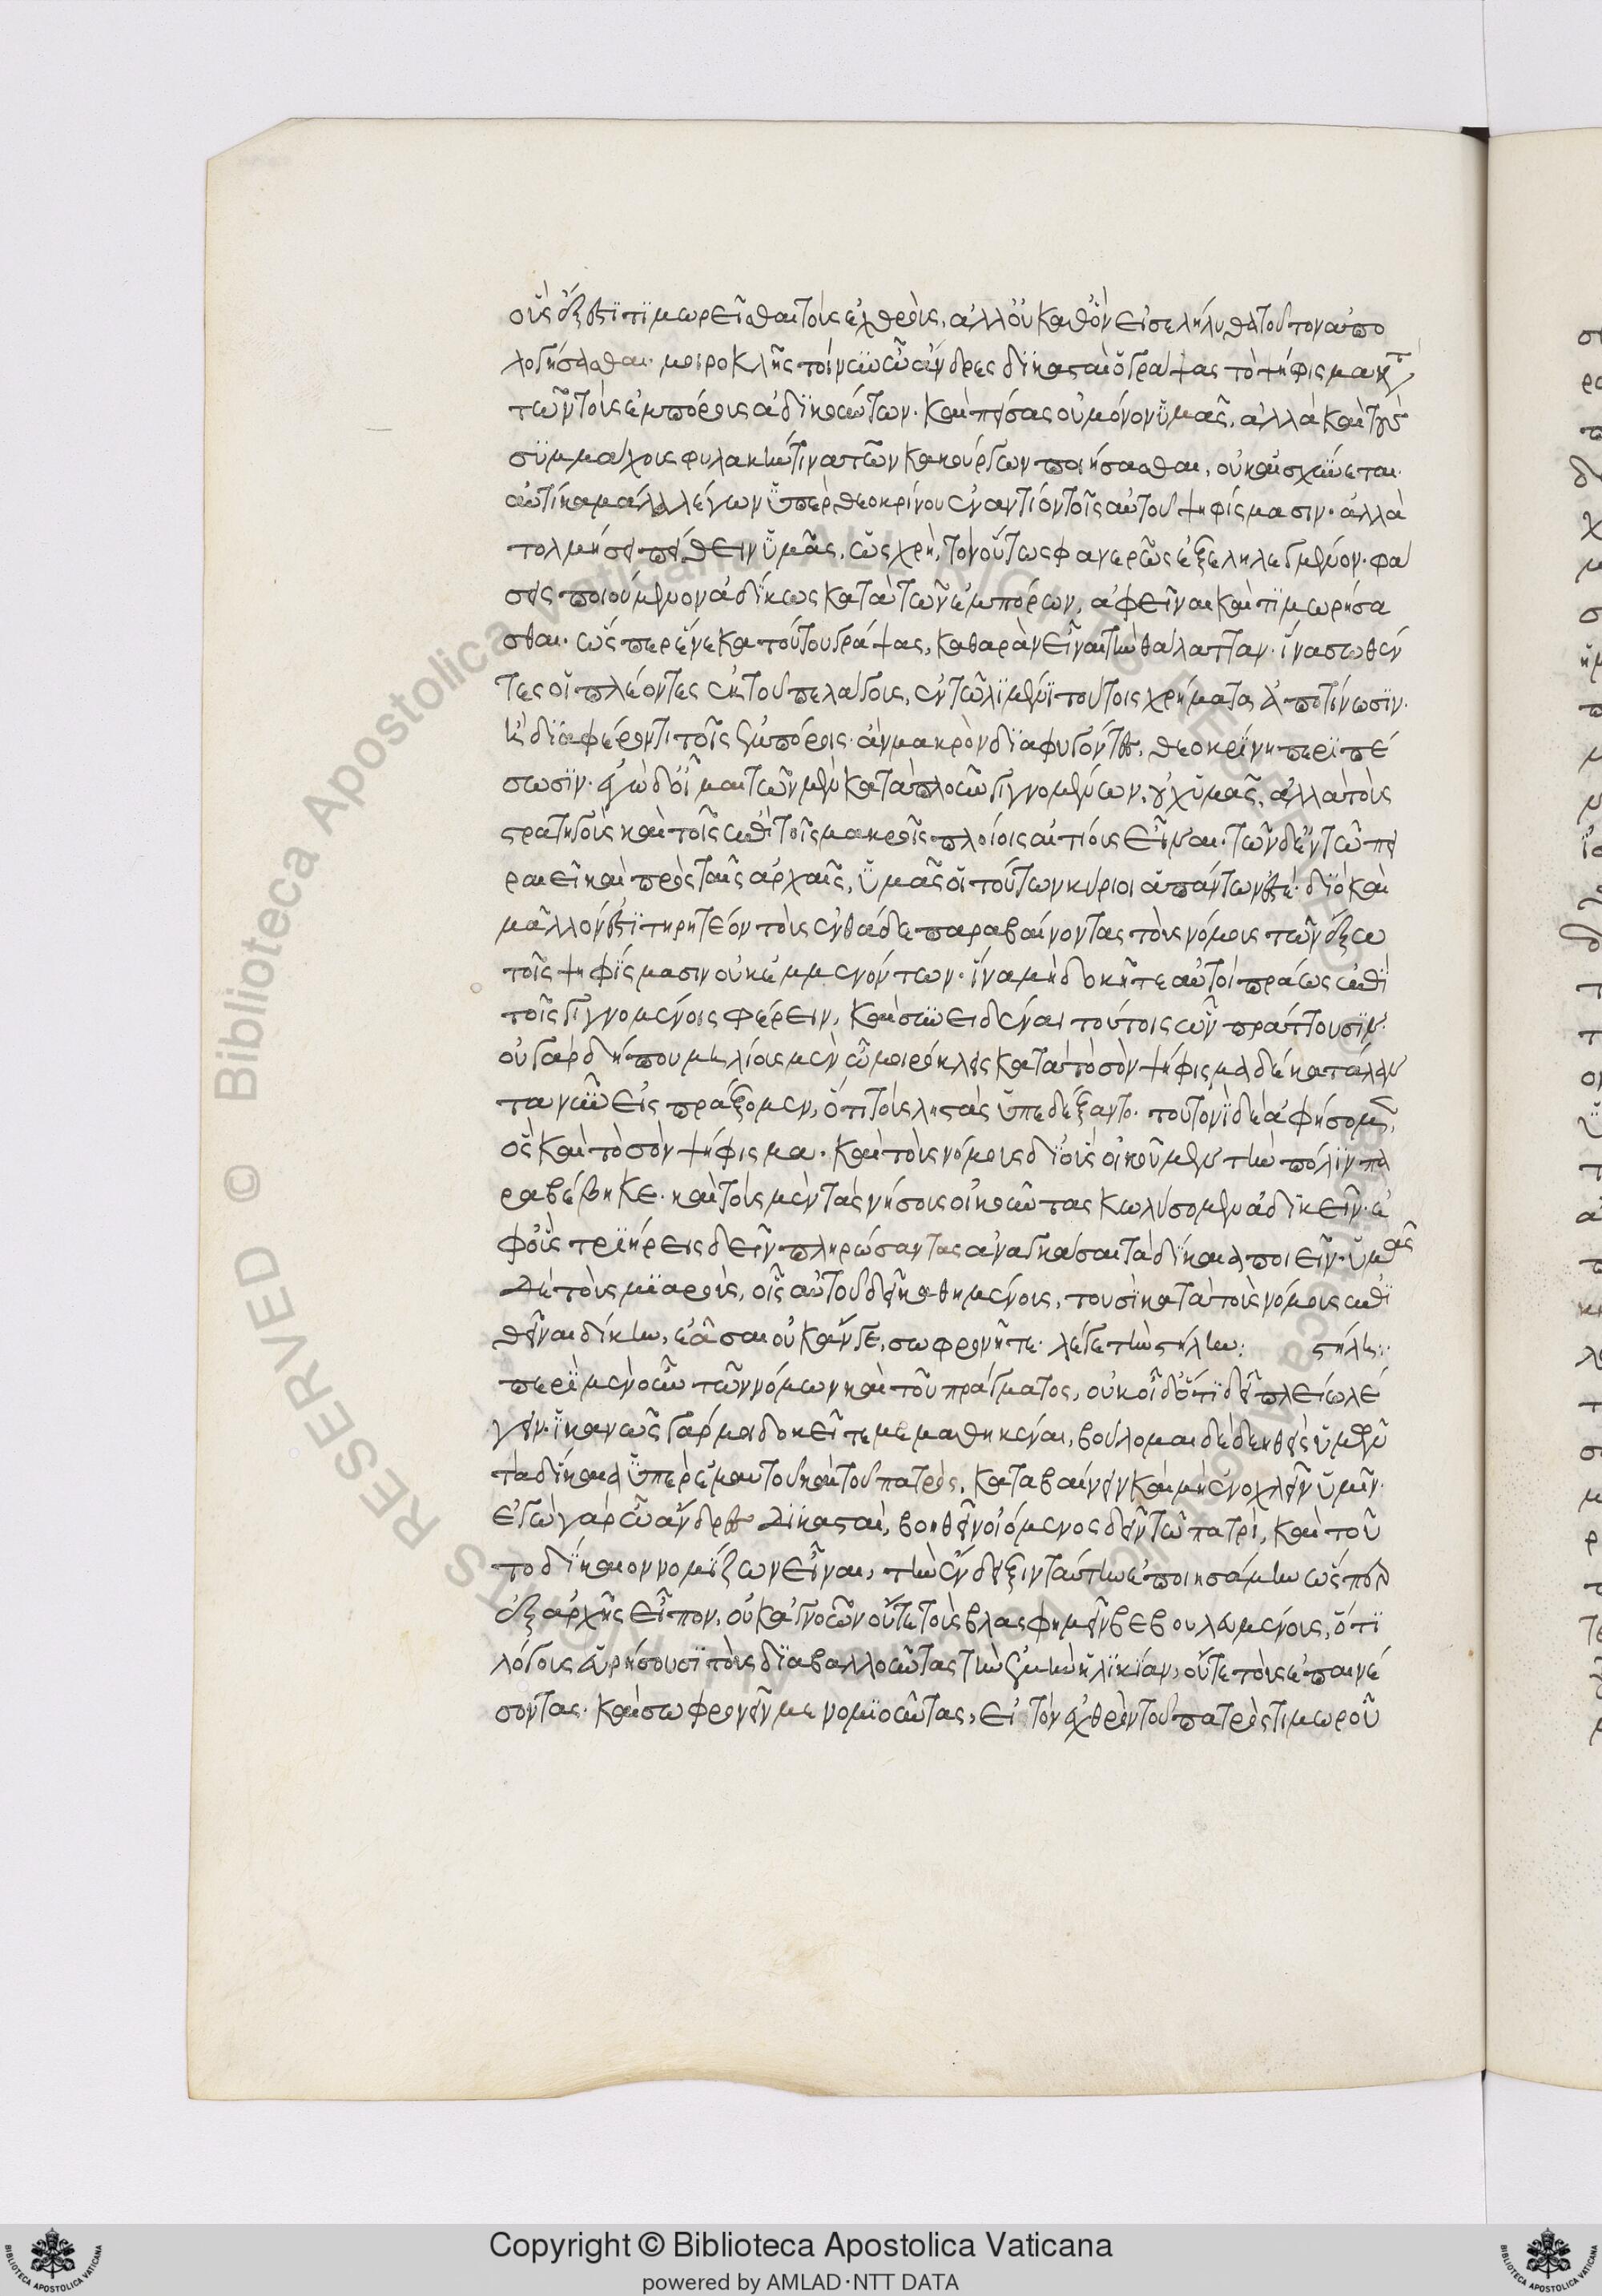 οὓς ἔξεστι τιμωρεῖσθαι τοὺς ἐχθροὺς, ἀλλ' οὐ καθ' ὃν εἰσελήλυθε τοῦτον ἀπο
λογήσασθαι. μοιροκλῆς τοίνυν ὦ ἄνδρες δικασταὶ ὁ γράψας τὸ ψήφισμα κατὰ
τῶν τοὺς ἐμπόρους ἀδικούντων. καὶ πείσας οὐ μόνον ὑμᾶς, ἀλλὰ καὶ τοὺς
συμμάχους φυλακήν τινα τῶν κακούργων ποιήσασθαι, οὐκ αἰσχύνεται.
αὐτίκα μάλα λέγων ὑπὲρ θεοκρίνου ἐναντίον τοῖς αὑτοῦ ψηφίσμασιν. ἀλλὰ
τολμήσει πείθειν ὑμᾶς, ὡς χρὴ, τὸν οὕτως φανερῶς ἐξεληλεγμένον. φά
σεις ποιούμενον ἀδίκως κατὰ τῶν ἐμπόρων, ἀφεῖναι καὶ τιμωρήσα
σθαι. ὥσπερ ἕνεκα τούτου γράψας, καθαρὰν εἶναι τὴν θάλατταν. ἵνα σωθέν
τες οἱ πλέοντες ἐκ τοῦ πελάγους, ἐν τῶ λιμένι τούτοις χρήματα ἀποτίνωσιν.
ἢ διαφέρον τι τοῖς ἐμπόροις. ἂν μακρὸν διαφυγόντες, θεοκρίνη περιπέ
σωσιν. ἐγὼ δ' οἶμαι τῶν μὲν κατὰ πλοῦν γιγνομένων, οὐχ ὑμᾶς, ἀλλὰ τοὺς
στρατηγοὺς καὶ τοὺς ἐπὶ τοῖς μακροῖς πλοίοις αἰτίους εἶναι. τῶν δ' ἐν τῶ πει
ραιεῖ καὶ πρὸς ταῖς ἀρχαῖς, ὑμᾶς οἳ τούτων κύριοι ἁπάντων ἐστέ. διὸ καὶ
μᾶλλόν ἐστι τηρητέον τοὺς ἐνθάδε παραβαίνοντας τοὺς νόμους τῶν ἔξω
τοῖς ψηφίσμασιν οὐκ ἐμμενόντων. ἵνα μὴ δοκῆτε αὐτοὶ πράως ἐπὶ
τοῖς γιγνομένοις φέρειν, καὶ συνειδέναι τούτοις ὧν πράττουσιν.
οὐ γὰρ δήπου μηλίους μὲν ὦ μοιρόκλεις κατὰ τὸ σὸν ψήφισμα δέκα τάλαν
τα νῦν εἰσπράξομεν, ὅτι τοὺς ληστὰς ὑπεδέξαντο. τουτονὶ δὲ ἀφήσομεν,
ὃς καὶ τὸ σὸν ψήφισμα. καὶ τοὺς νόμους δι' οὓς οἰκοῦμεν τὴν πόλιν πα
ραβέβηκε. καὶ τοὺς μὲν τὰς νήσους οἰκοῦντας κωλύσομεν ἀδικεῖν. ἐ
φ' οὓς τριήρεις δεῖ πληρώσαντας ἀναγκάσαι τὰ δίκαια ποιεῖν. ὑμᾶς
δὲ τοὺς μιαροὺς, οἷς αὐτοῦ δεῖ καθημένους, τουσὶ κατὰ τοὺς νόμους ἐπι
θεῖναι δίκην, ἐάσαι οὐκ ἄν γε, σωφρονῆτε. λέγε τὴν στήλην: στήλη:
περὶ μὲν οὖν τῶν νόμων καὶ τοῦ πράγματος, οὐκ οἶδ' ὅτι δεῖ πλείω λέ
γειν. ἱκανῶς γάρ μοι δοκεῖτε μεμαθηκέναι, βούλομαι δὲ δεηθεὶς ὑμῶν
τὰ δίκαια ὑπὲρ ἐμαυτοῦ καὶ τοῦ πατρὸς, καταβαίνειν καὶ μὴ ἐνοχλεῖν ὑμῖν.
ἐγὼ γὰρ ὦ ἄνδρες δικασταὶ, βοηθεῖν οἰόμενος δεῖν τῶ πατρὶ, καὶ τοῦ
το δίκαιον νομίζων εἶναι, τὴν ἔνδειξιν ταύτην ἐποιησάμην ὥσπερ
ἐξ ἀρχῆς εἶπον, οὐκ ἀγνοῶν οὔτε τοὺς βλασφημεῖν βεβουλημένους, ὅτι
λόγους εὑρήσουσι τοὺς διαβαλλοῦντας τὴν ἐμὴν ἡλικίαν, οὔτε τοὺς ἐπαινέ
σοντας. καὶ σωφρονεῖν με νομιοῦντας, εἰ τὸν ἐχθρὸν τοῦ πατρὸς τιμωροῦ
Copyright © Biblioteca Apostolica Vaticana
powered by AMLAD·NTT DATA